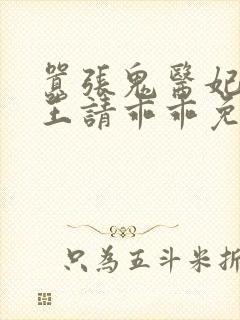 囂張鬼醫妃
王請乖乖免
只為五斗米折